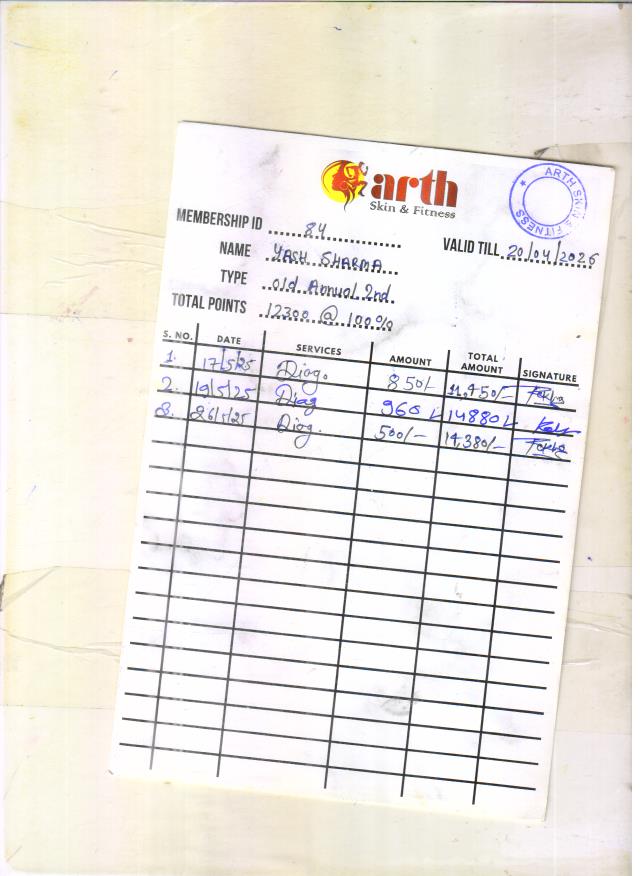 arth
Skin & Fitness
ARTH SKIN & FITNESS
MEMBERSHIP ID 84
VALID TILL 20/04/2026
NAME YASH SHARMA
TYPE old Annual 2nd
TOTAL POINTS 12300 @ 100%
S. NO. DATE SERVICES AMOUNT TOTAL AMOUNT SIGNATURE
1. 17/5/25 Diag. 850/- 11,450/-
2. 19/5/25 Diag 960/- 14880/-
3. 26/5/25 Diag. 500/- 14,380/-